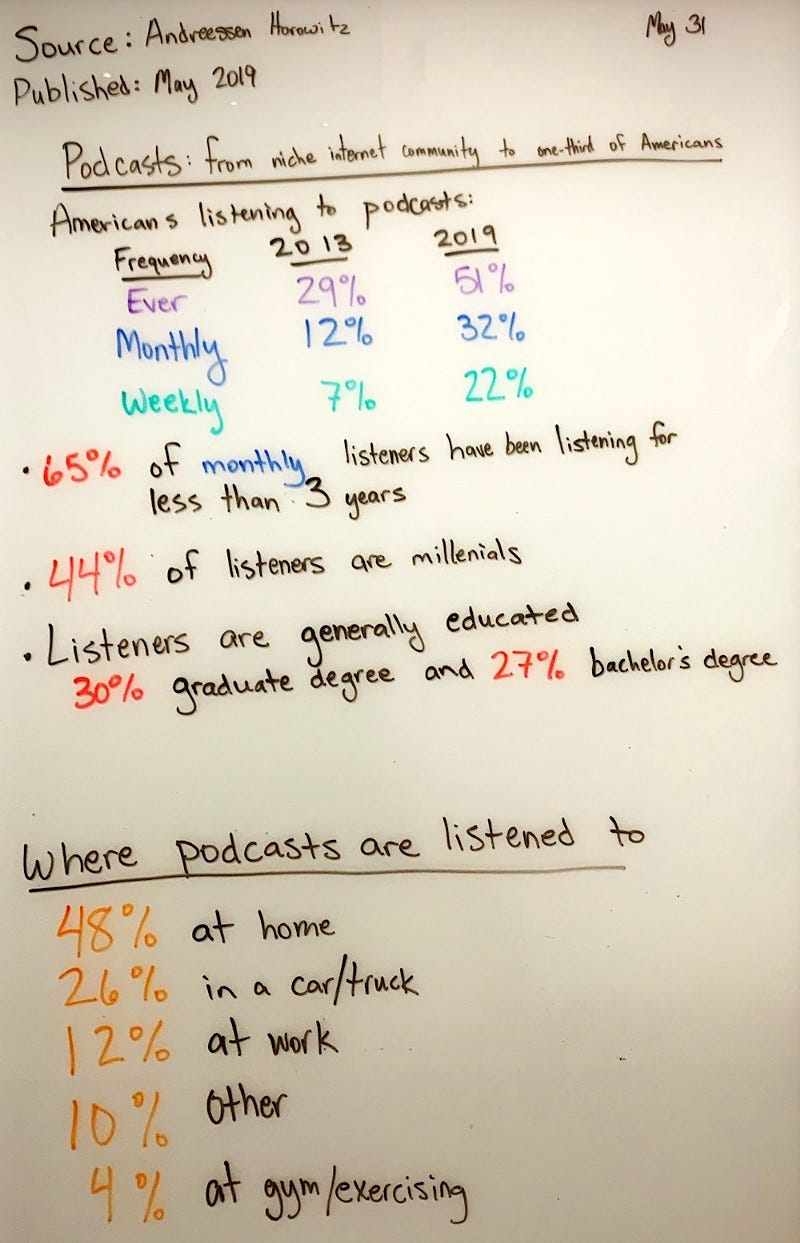 Source: Andreessen Horowitz
May 31
Published: May 2019
Podcasts: from niche internet community to one-third of Americans
Americans listening to podcasts:
Frequency 2013 2019
Ever 29% 51%
Monthly 12% 32%
Weekly 7% 22%
• 65% of monthly listeners have been listening for
less than 3 years
• 44% of listeners are millenials
• Listeners are generally educated
30% graduate degree and 27% bachelor's degree
Where podcasts are listened to
48% at home
26% in a car/truck
12% at work
10% other
4% at gym/exercising